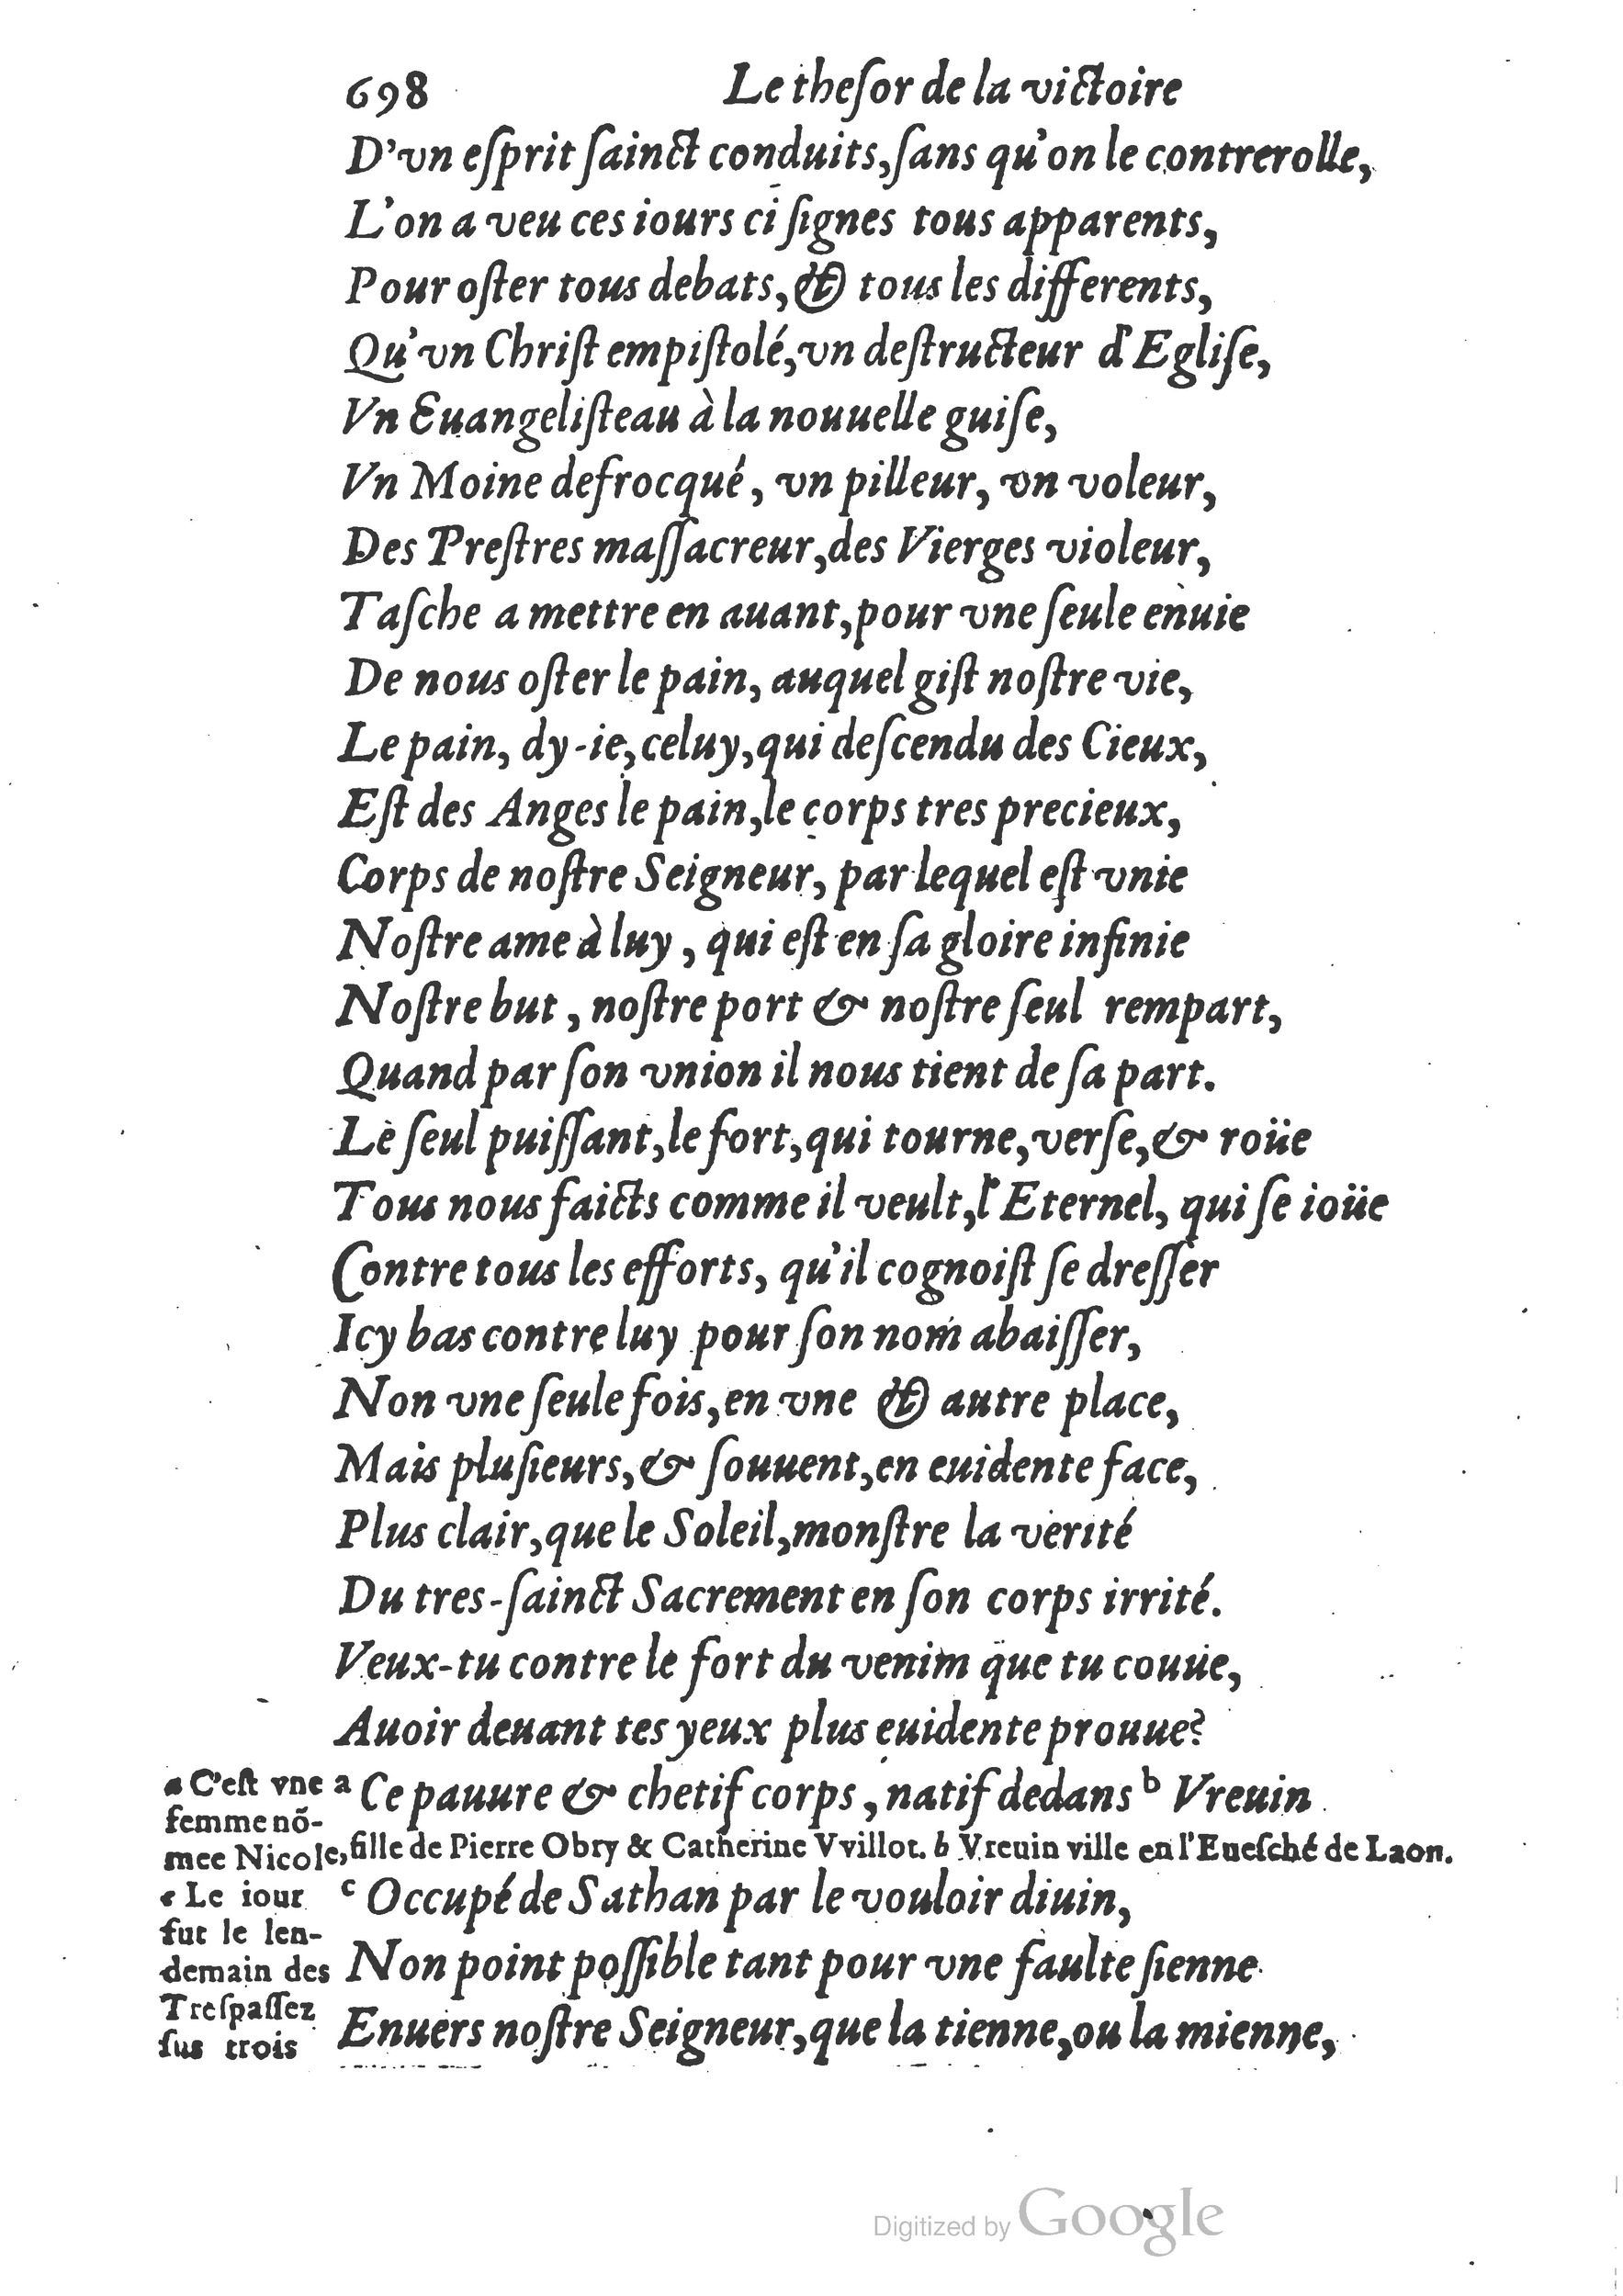 698 Le theſor de la victoire
D'vn eſprit ſainct conduits, ſans qu'on le contrerolle,
L'on a veu ces iours ci ſignes tous apparents,
Pour oſter tous debats, & tous les differents,
Qu'vn Chriſt empiſtolé, vn deſtructeur d'Egliſe,
Vn Euangeliſteau à la nouuelle guiſe,
Vn Moine defrocqué, vn pilleur, vn voleur,
Des Preſtres maſſacreur, des Vierges violeur,
Taſche a mettre en auant, pour vne ſeule enuie
De nous oſter le pain, auquel giſt noſtre vie,
Le pain, dy-ie, celuy, qui deſcendu des Cieux,
Eſt des Anges le pain, le corps tres precieux,
Corps de noſtre Seigneur, par lequel eſt vnie
Noſtre ame à luy, qui eſt en ſa gloire infinie
Noſtre but, noſtre port & noſtre ſeul rempart,
Quand par ſon vnion il nous tient de ſa part.
Le ſeul puiſſant, le fort, qui tourne, verſe, & roüe
Tous nous faicts comme il veult, l'Eternel, qui ſe ioüe
Contre tous les efforts, qu'il cognoiſt ſe dreſſer
Icy bas contre luy pour ſon nom abaiſſer,
Non vne ſeule fois, en vne & autre place,
Mais pluſieurs, & ſouuent, en euidente face,
Plus clair, que le Soleil, monſtre la verité
Du tres-ſainct Sacrement en ſon corps irrité.
Veux-tu contre le fort du venim que tu couue,
Auoir deuant tes yeux plus euidente prouue?
a Ce pauure & chetif corps, natif dedans b Vreuin
a C'eſt vne
femme nõ-
mee Nicole, fille de Pierre Obry & Catherine Vvillot. b Vreuin ville en l'Eueſché de Laon.
c Occupé de Sathan par le vouloir diuin,
Non point poſſible tant pour vne faulte ſienne
Enuers noſtre Seigneur, que la tienne, ou la mienne,
c Le iour
fut le len-
demain des
Treſpaſſez
ſus trois
Digitized by Google